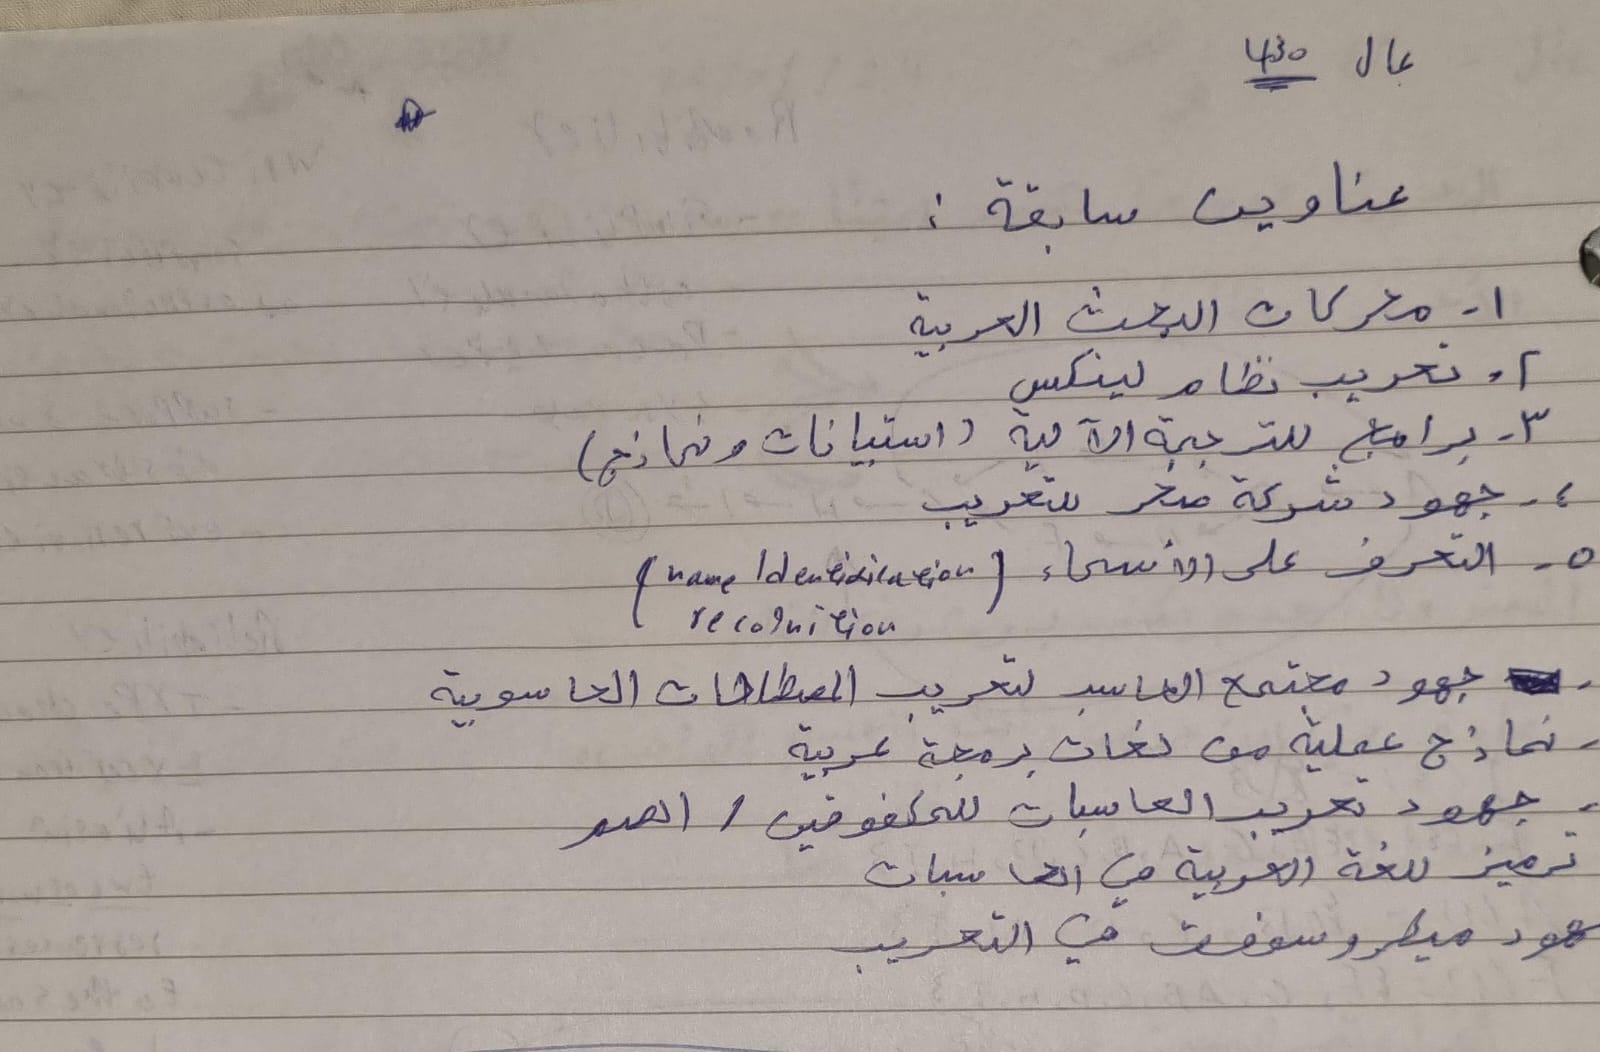 عال ٤٣٠
عناوين سابقة :
١- محركات البحث العربية
٢- تعريب نظام لينكس
٣- برامج للترجمة الآلية (استبيانات ونماذج)
٤- جهود شركة صخر للتعريب
٥- التعرف على الأسماء (name Identification
recognition)
- جهود مجتمع الحاسب لتعريب المصطلحات الحاسوبية
- نماذج عملية من لغات برمجة عربية
- جهود تعريب الحاسبات للمكفوفين / الصم
ترميز للغة العربية في الحاسبات
هود ميكروسوفت في التعريب